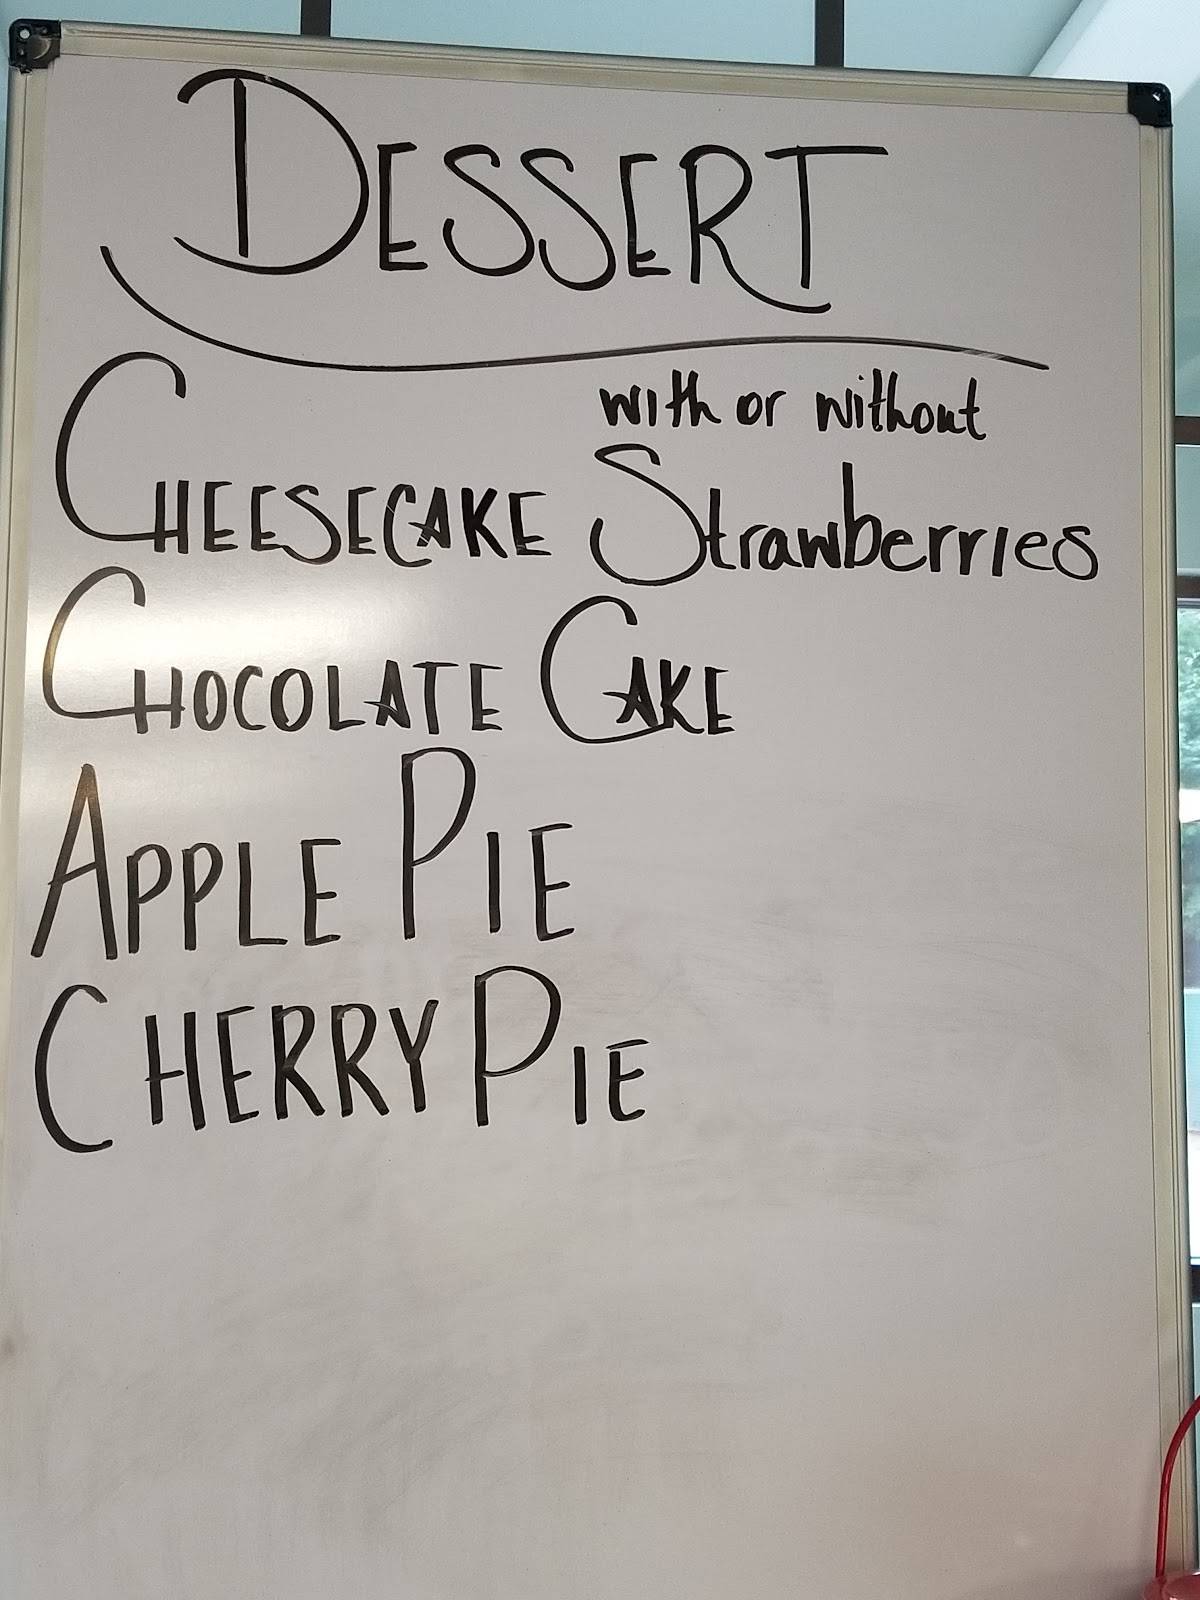 DESSERT
with or without
CHEESECAKE Strawberries
CHOCOLATE CAKE
APPLE PIE
CHERRY PIE